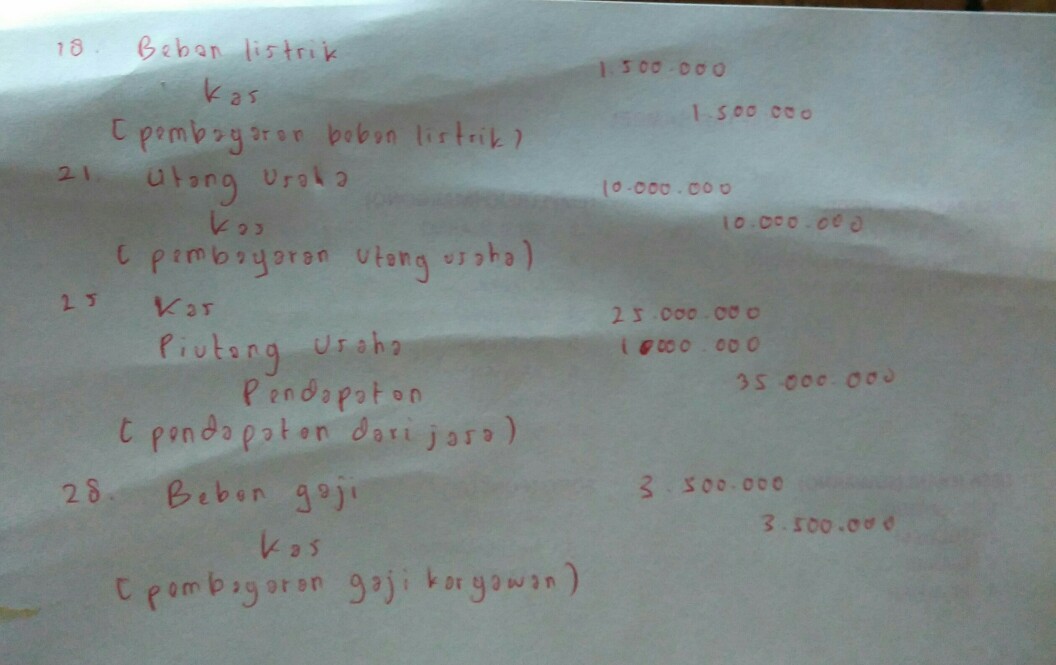 18. Beban listrik 1.500.000
Kas 1.500.000
(pembayaran beban listrik)
21. Utang Usaha 10.000.000
Kas 10.000.000
(pembayaran utang usaha)
25 Kas 25.000.000
Piutang Usaha 10000.000
Pendapatan 35.000.000
(pendapatan dari jasa)
28. Beban gaji 3.500.000
Kas 3.500.000
(pembayaran gaji karyawan)